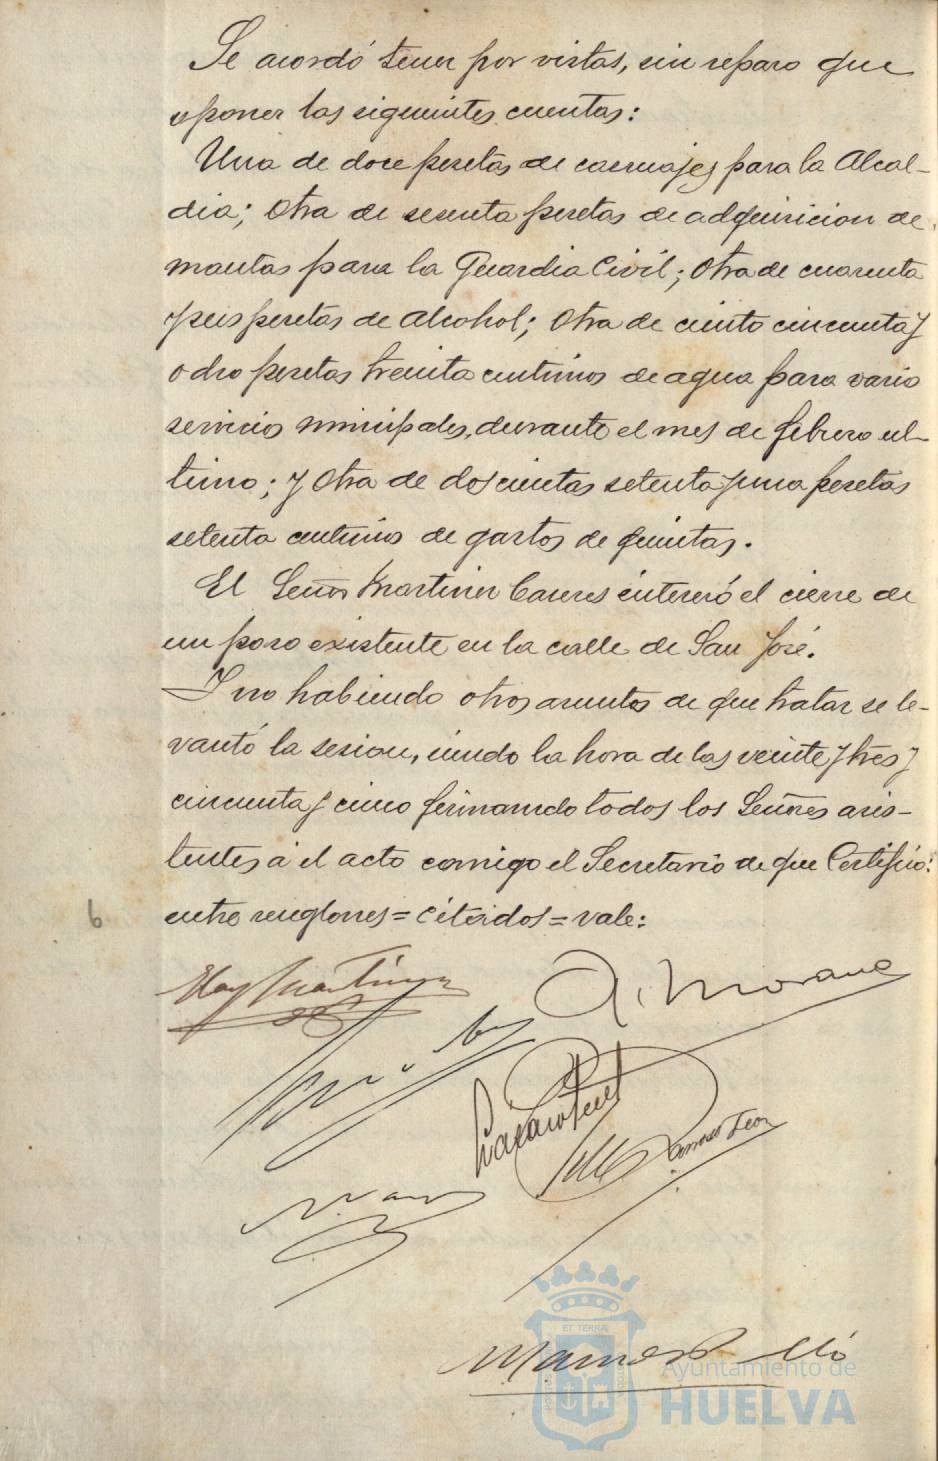 Se acordó tener por vistas, sin reparo que
oponer las siguientes cuentas:
Una de doce pesetas de carruajes para la Alcal-
dia; otra de sesenta pesetas de adquisicion de
mantas para la Guardia Civil; otra de cuarenta
y seis pesetas de alcohol; otra de ciento cincuenta y
ocho pesetas treinta centimos de agua para vario
servicios municipales, durante el mes de febrero ul-
timo; y otra de doscientas setenta y una pesetas
setenta centimos de gastos de quintas.
El Señor Martinez Caceres intereró el cierre de
un poso existente en la calle de San José.
Y no habiendo otros asuntos de que tratar se le-
vantó la sesion, siendo la hora de las veinte y tres y
cincuenta y cinco firmando todos los Señores asis-
tentes á el acto conmigo el Secretario de que Certifico:
entre renglones = citados = vale:
6
Eloy Martinez
A. Morano
Lazaro Perez
ET TERRA
Ayuntamiento de
HUELVA